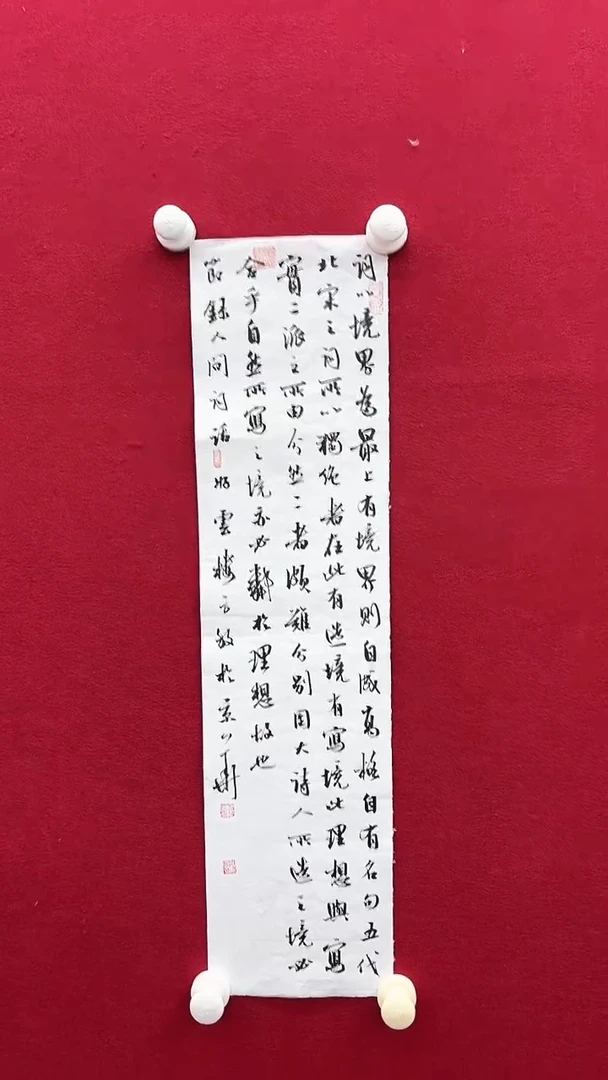 詞以境界為最上有境界則自成高格自有名句五代
北宋之詞所以獨絕者在此有造境有寫境此理想與寫
實二派之所由分然二者頗難分別因大詩人所造之境必
合乎自然所寫之境亦必鄰於理想故也
節錄人間詞話 雲樓 於京